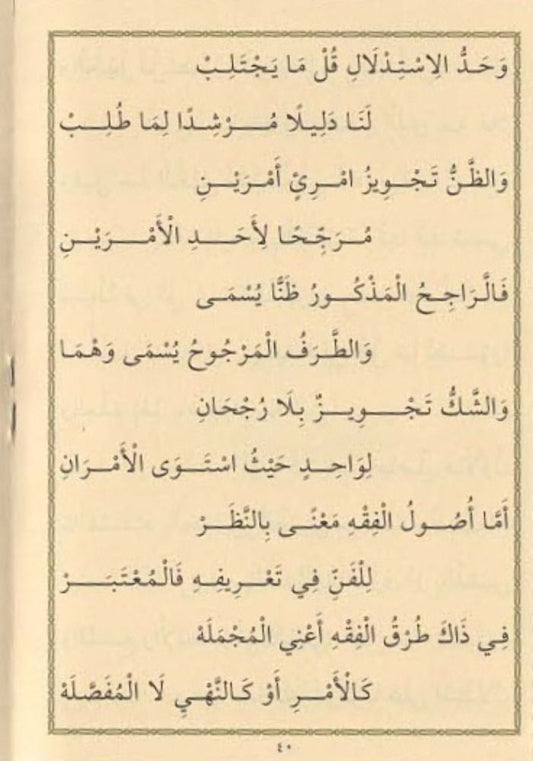 وَحَدُّ الِاسْتِدْلَالِ قُلْ مَا يَجْتَلِبْ
لَنَا دَلِيلًا مُرْشِدًا لِمَا طُلِبْ
وَالظَّنُّ تَجْوِيزُ امْرِئٍ أَمْرَيْنِ
مُرَجِّحًا لِأَحَدِ الْأَمْرَيْنِ
فَالرَّاجِحُ الْمَذْكُورُ ظَنًّا يُسْمَى
وَالطَّرَفُ الْمَرْجُوحُ يُسْمَى وَهْمَا
وَالشَّكُّ تَجْوِيزٌ بِلَا رُجْحَانِ
لِوَاحِدٍ حَيْثُ اسْتَوَى الْأَمْرَانِ
أَمَّا أُصُولُ الْفِقْهِ مَعْنًى بِالنَّظَرْ
لِلْفَنِّ فِي تَعْرِيفِهِ فَالْمُعْتَبَرْ
فِي ذَاكَ طُرْقُ الْفِقْهِ أَعْنِي الْمُجْمَلَهْ
كَالْأَمْرِ أَوْ كَالنَّهْيِ لَا الْمُفَصَّلَهْ
٤٠